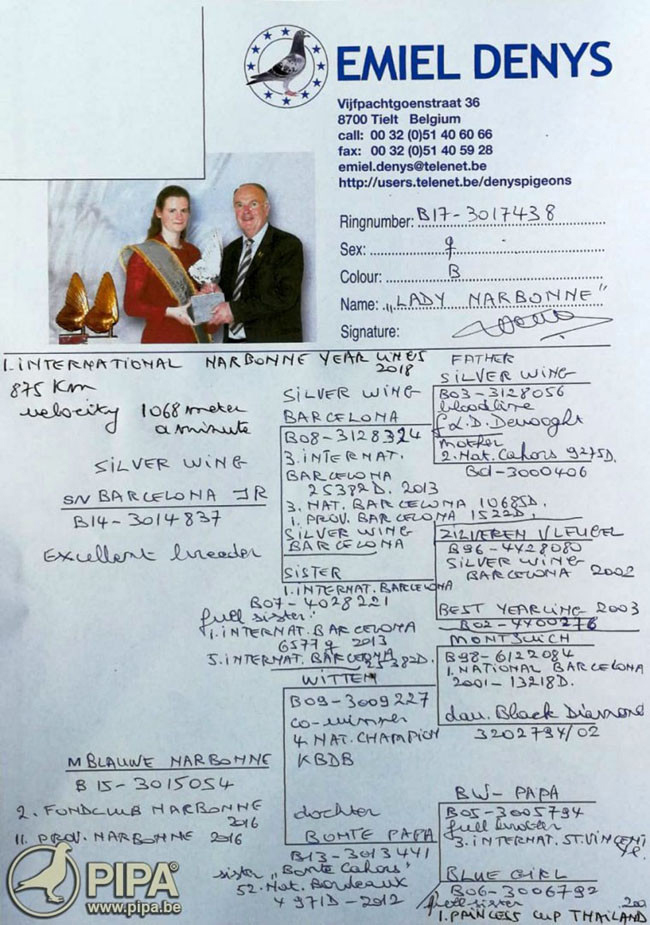 EMIEL DENYS
Vijfpachtgoenstraat 36
8700 Tielt Belgium
call: 00 32 (0)51 40 60 66
fax: 00 32 (0)51 40 59 28
emiel.denys@telenet.be
http://users.telenet.be/denyspigeons
Ringnumber: B17-3017438
Sex: ♀
Colour: B
Name: "LADY NARBONNE"
Signature:
1. INTERNATIONAL NARBONNE YEARLINGS
2018
875 Km
velocity 1068 meter
a minute
SILVER WING
SN BARCELONA JR
B14-3014837
Excellent breeder
M BLAUWE NARBONNE
B15-3015054
2. FONDCLUB NARBONNE
2016
11. PROV. NARBONNE 2016
SILVER WING
BARCELONA
B08-3128324
3. INTERNAT.
BARCELONA
25382D. 2013
3. NAT. BARCELONA 10685D.
1. PROV. BARCELONA 1522D.
SILVER WING
BARCELONA
SISTER
1. INTERNAT. BARCELONA
B07-4028221
full sister:
1. INTERNAT. BARCELONA
6577♀ 2013
5. INTERNAT. BARCELONA
25382D.
WITTEN
B09-3009227
co-winner
4. NAT. CHAMPION
KBDB
dochter
BONTE PAPA
B13-3013441
sister "Bonte Cahors"
52. Nat. Bordeaux
4971D-2012
FATHER
SILVER WING
B03-3128056
bloodline
D. Devooght
mother
2. Nat. Cahors 9275D.
B01-3000406
ZILVEREN VLEUGEL
B96-4428080
SILVER WING
BARCELONA 2002
BEST YEARLING 2003
B02-4400276
MONTJUICH
B98-6122084
1. NATIONAL BARCELONA
2001-13218D.
dau. Black Diamond
3202794/02
BW-PAPA
B05-3005794
full brother
3. INTERNAT. ST. VINCENT
BLUE GIRL
B06-3006792
full sister
1. PRINCESS CUP THAILAND
PIPA
www.pipa.be